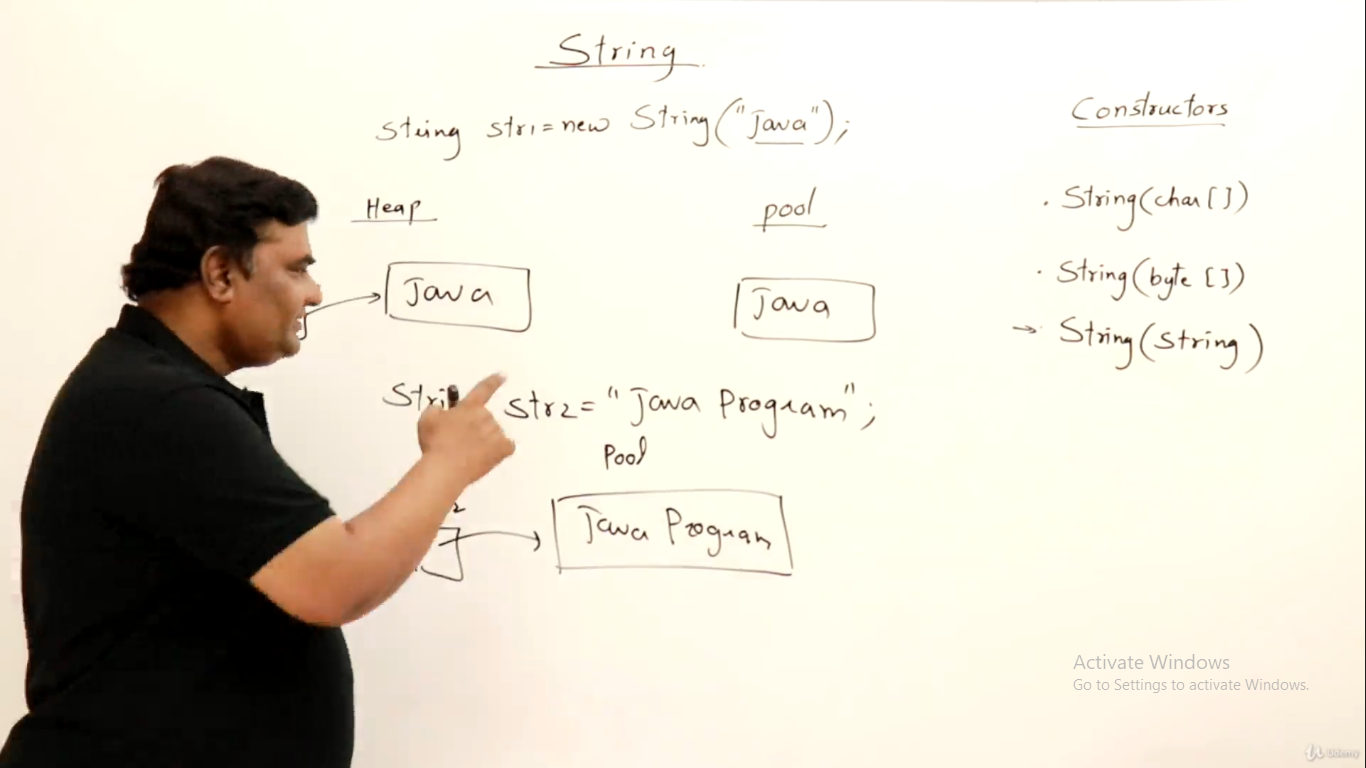 String
String str1 = new String("Java");
Heap
pool
Java
Java
str2 = "Java Program";
Pool
2
Java Program
Constructors
. String(char[])
. String(byte [])
→ String(String)
Activate Windows
Go to Settings to activate Windows.
Udemy